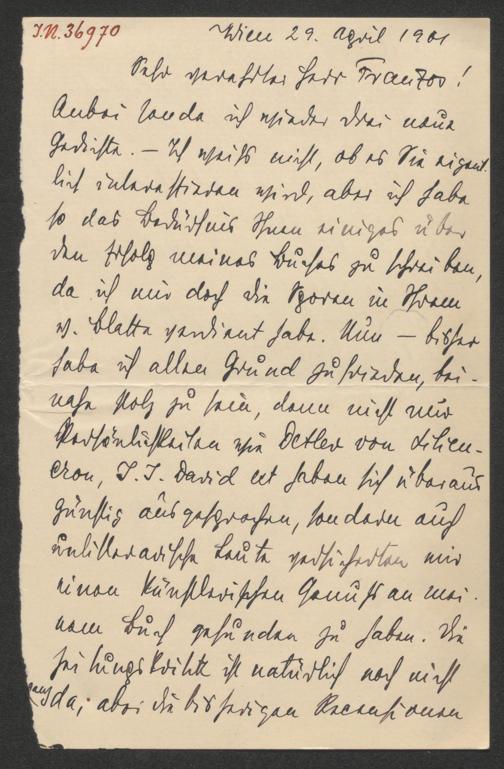 I.N. 36970
Wien 29. April 1901
Sehr verehrter Herr Franzos!
Anbei sende ich wieder drei neue
Gedichte. – Ich weiß nicht, ob es Sie eigent-
lich interessieren wird, aber ich habe
so das Bedürfnis Ihnen einiges über
den Erfolg meines Buches zu schreiben,
da ich mir doch die Sporen in Ihrem
w. Blatte verdient habe. Nun – bisher
habe ich allen Grund zufrieden, bei-
nahe stolz zu sein, denn nicht nur
Persönlichkeiten wie Detlev von Lilien-
cron, J. J. David etc haben sich überaus
günstig ausgesprochen, sondern auch
unliterarische Leute versicherten mir
einen künstlerischen Genuß an mei-
nem Buch gefunden zu haben. Die
Zeitungskritik ist natürlich noch nicht
ganz da, aber die bisherigen Recensionen